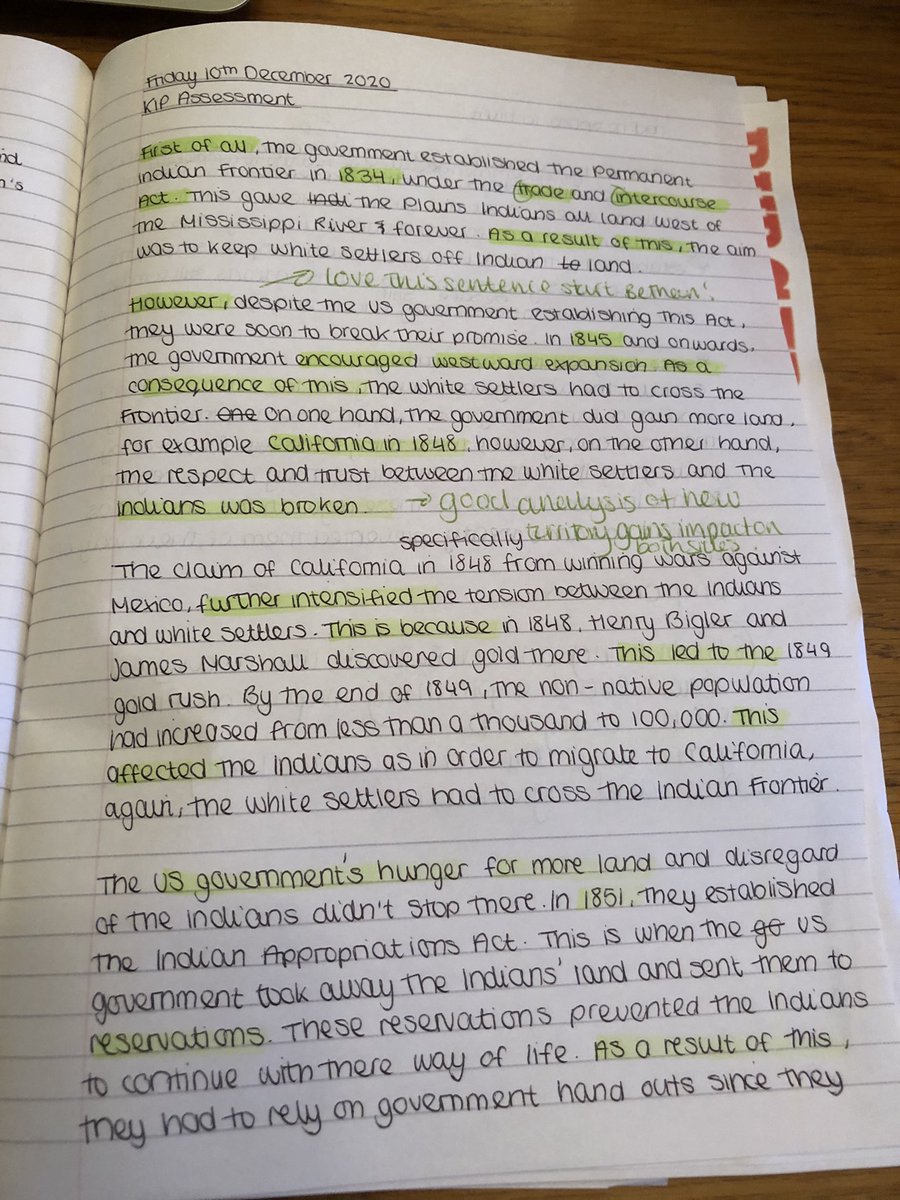 Friday 10th December 2020
KIP Assessment
First of all, the government established the Permanent
Indian Frontier in 1834, under the trade and intercourse
Act. This gave the Plains Indians all land west of
the Mississippi River forever. As a result of this, the aim
was to keep white settlers off Indian to land.
love this sentence start
However, despite the US government establishing this Act,
they were soon to break their promise. In 1845 and onwards,
the government encouraged westward expansion. As a
consequence of this, the white settlers had to cross the
frontier. One On one hand, the government did gain more land,
for example California in 1848, however, on the other hand,
the respect and trust between the white settlers and the
Indians was broken. → good analysis of new
specifically territory gains impact on
both sides
The claim of California in 1848 from winning wars against
Mexico, further intensified the tension between the Indians
and white settlers. This is because in 1848, Henry Bigler and
James Marshall discovered gold there. This led to the 1849
gold rush. By the end of 1849, the non-native population
had increased from less than a thousand to 100,000. This
affected the Indians as in order to migrate to California,
again, the white settlers had to cross the Indian Frontier.
The US government's hunger for more land and disregard
of the Indians didn't stop there. In 1851, they established
the Indian Appropriations Act. This is when the go US
government took away the Indians' land and sent them to
reservations. These reservations prevented the Indians
to continue with there way of life. As a result of this,
they had to rely on government hand outs since they